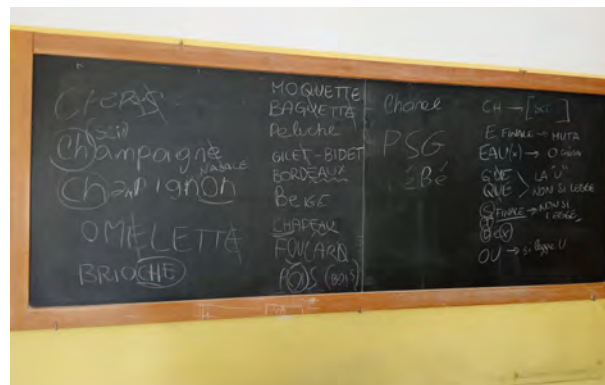 (scii)
Champagne
NASALE
Champignon
OMELETTE
BRIOCHE
MOQUETTE
BAGUETTE
Peluche
GILET - BIDET
BORDEAUX
BEIGE
CHAPEAU
FOULARD
(BOIS)
Chanel
PSG
BéBé
CH → [SCI]
E FINALE → MUTA
EAU(x) → O CHIUSA
GUE LA "U"
QUE NON SI LEGGE
S FINALE → NON SI
LEGGE
T
D e X
OU → si legge U